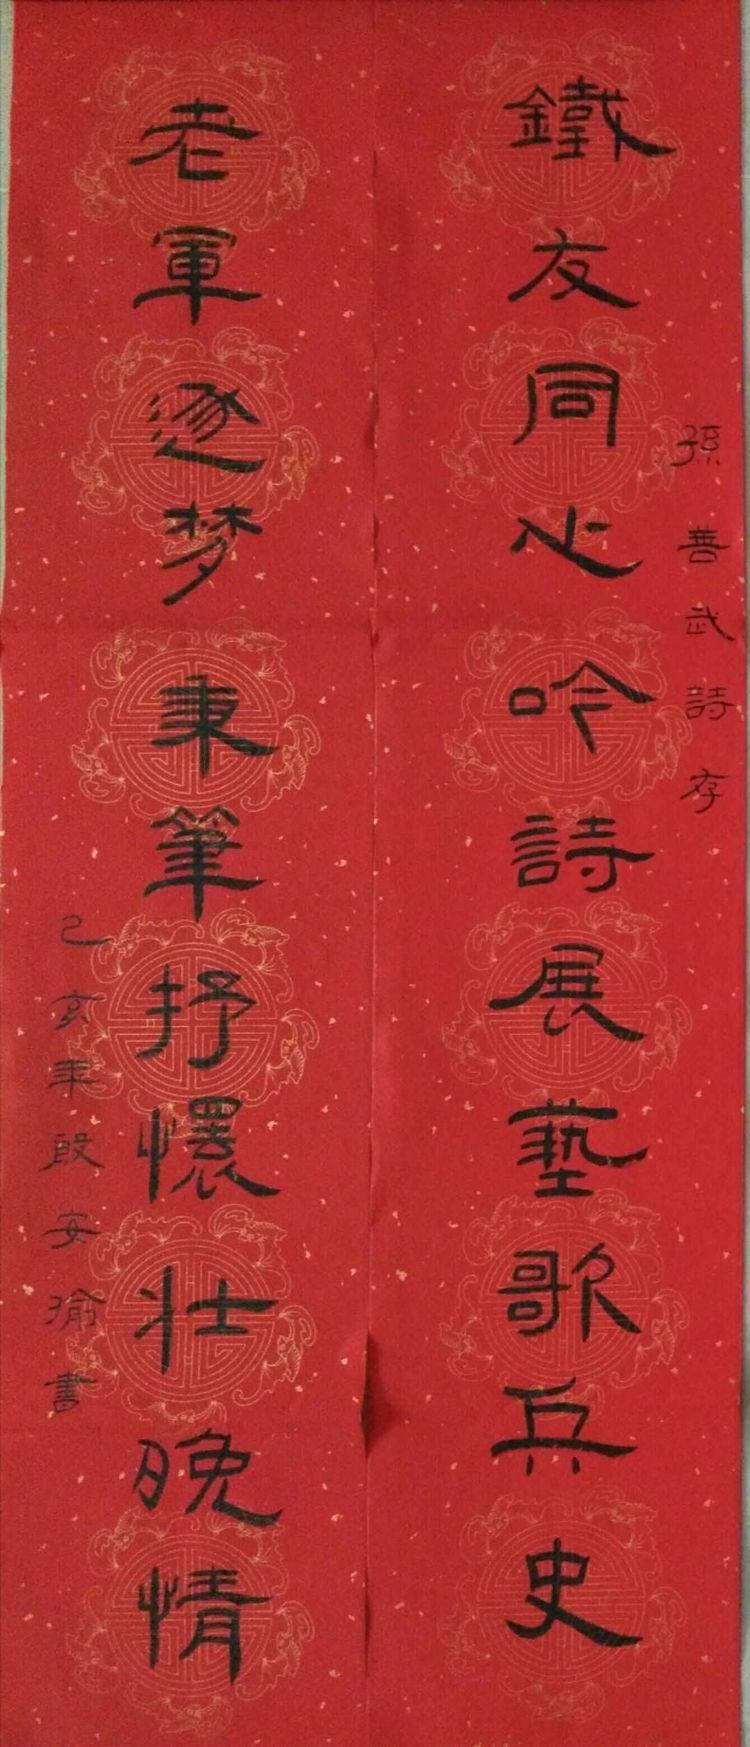 鐵友同心吟詩展藝歌兵史
孫善武詩存
老軍逐梦秉筆抒懷壮晚情
己亥年殷安瑜書